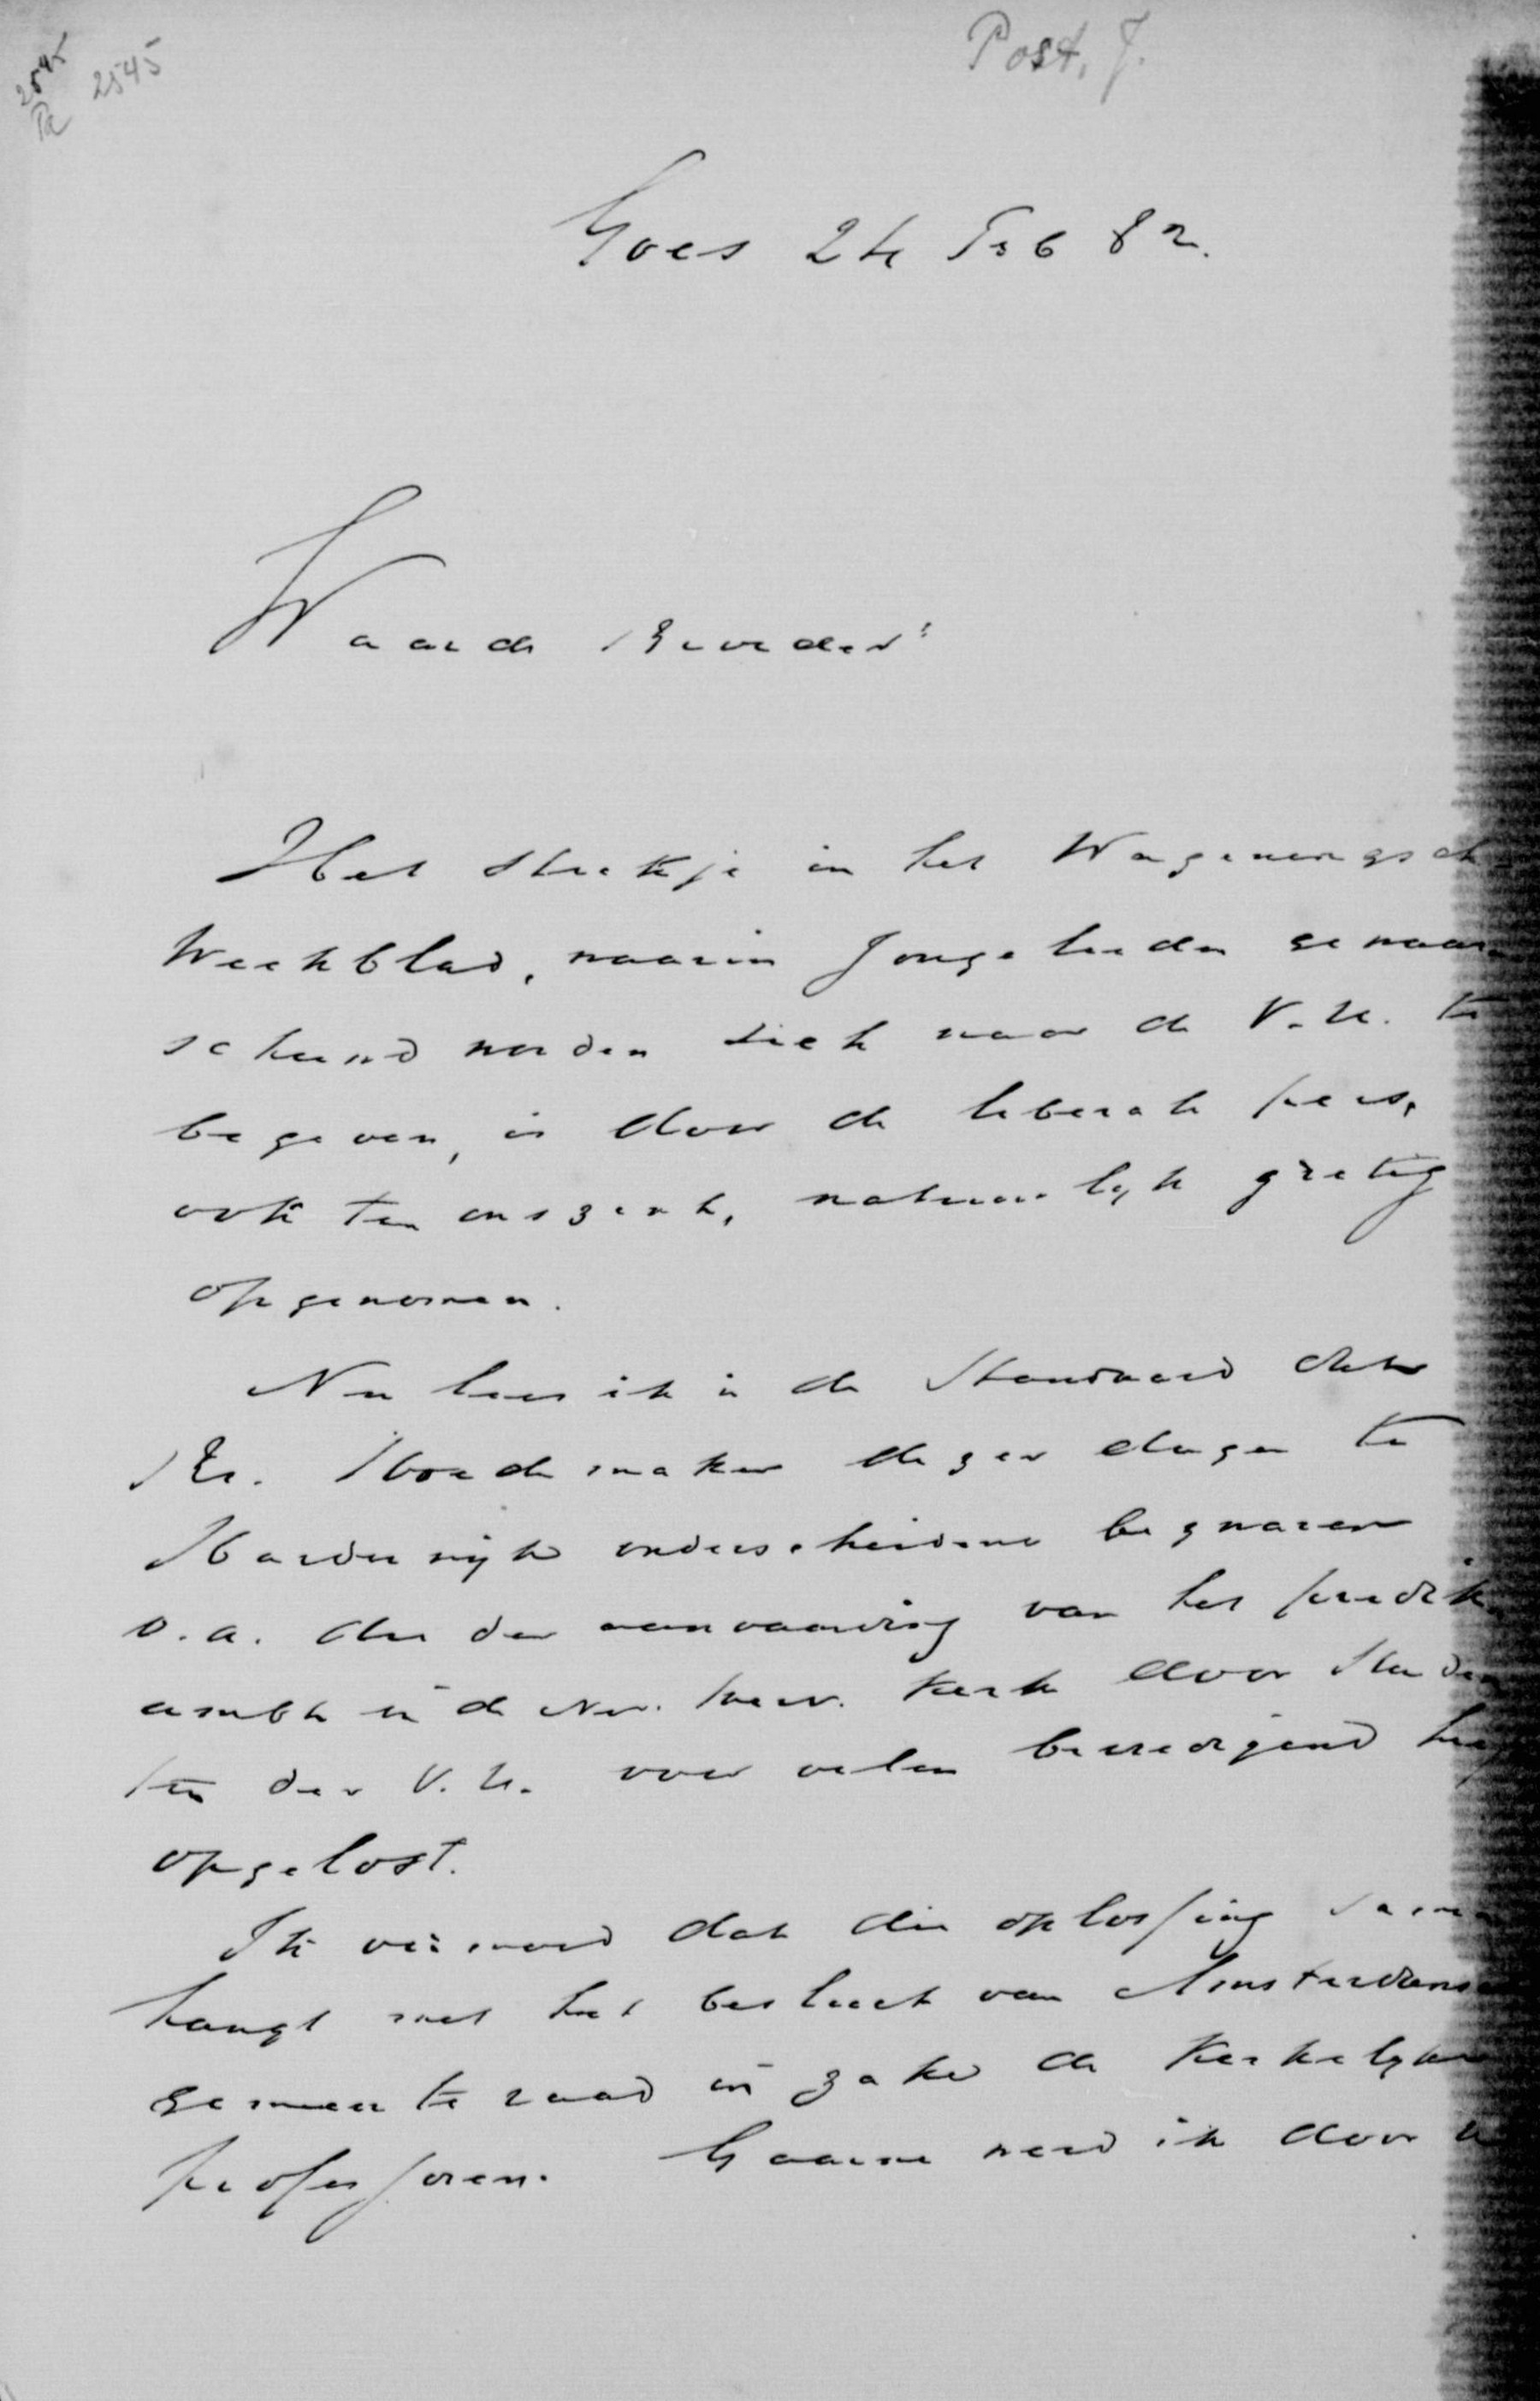 Post, J.
2545
2545
Goes 24 Feb 82.
Waarde Broeder!
Het stukje in het Wageningsch
Weekblad, waarin jongelieden gewaar
schuwd worden zich naar de V.U. te
begeven, is door de liberale pers,
ook ten onzent, natuurlijk gretig
opgenomen.
Nu lees ik in de Standaard dat
Br. Hoedemaker dezer dagen te
Harderwijk onderscheidene bezwaren
o.a. der aanvaarding van het predik
ambt in de Ned. Herv. Kerk door Studen
ten der V.U. voor velen bevredigend heeft
opgelost.
Ik vermoed dat die oplossing samen
hangt met het besluit van Amsterdams
gemeenteraad in zake de Kerkelijke
professoren. Gaarne werd ik door U